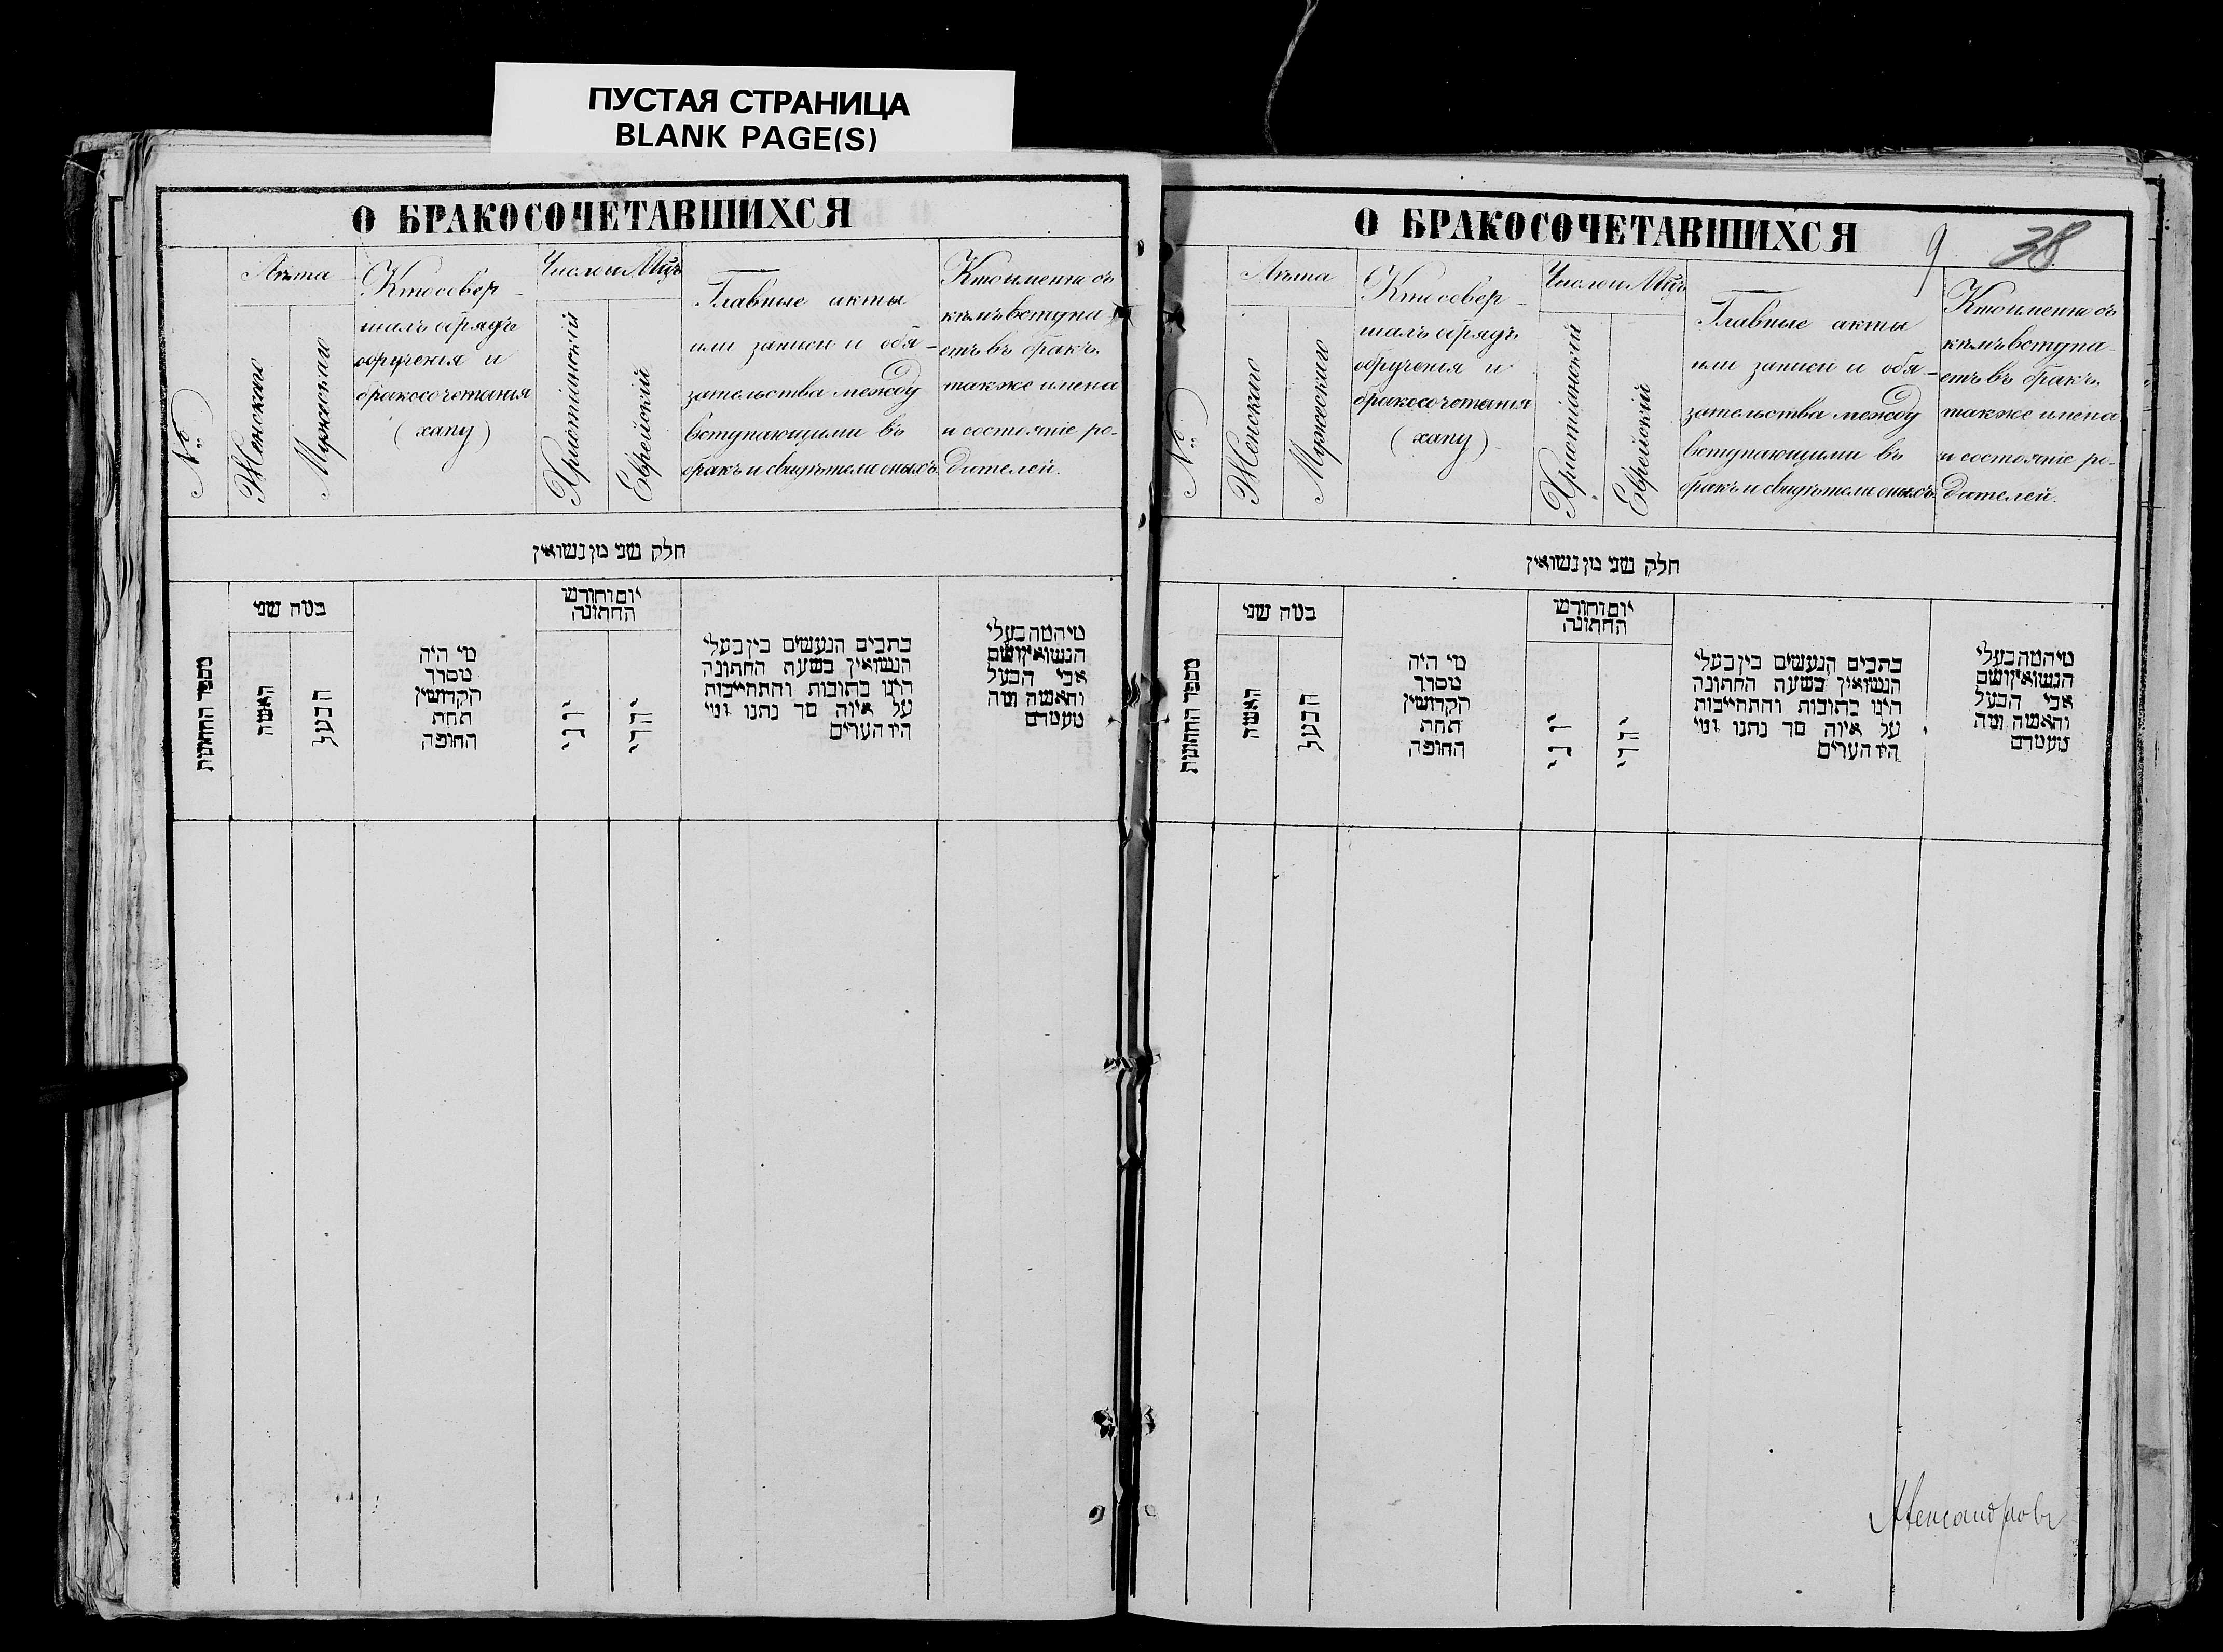 ПУСТАЯ СТРАНИЦА
BLANK PAGE(S)
О БРАКОСОЧЕТАВШИХСЯ
№
Лѣта
Женскаго
Мужескаго
Кто совер-
шалъ обрядъ
обрученія и
бракосочетанія
(хапу)
Число и Мцъ
Христіанскій
Еврейскій
Главные акты
или записи и обя-
зательства между
вступающими въ
бракъ и свидѣтели оныхъ
Кто именно съ
кѣмъ вступа-
етъ въ бракъ,
также имена
и состояніе ро-
дителей.
חלק שני מן נשואין
מספר החתונות
כמה שני
האשה
הבעל
מי היה
מסדר
הקדושין
תחת
החופה
יום וחודש
החתונה
יוני
יהדי
כתבים הנעשים בין בעלי
הנשואין בשעת החתונה
היינו כתובות והתחייבות
על איזה סך נתנו ומי
היו העדים
מי המה בעלי
הנשואין ושם
אבי הבעל
והאשה ומה
מעמדם
О БРАКОСОЧЕТАВШИХСЯ
9
38
№
Лѣта
Женскаго
Мужескаго
Кто совер-
шалъ обрядъ
обрученія и
бракосочетанія
(хапу)
Число и Мцъ
Христіанскій
Еврейскій
Главные акты
или записи и обя-
зательства между
вступающими въ
бракъ и свидѣтели оныхъ
Кто именно съ
кѣмъ вступа-
етъ въ бракъ,
также имена
и состояніе ро-
дителей.
חלק שני מן נשואין
מספר החתונות
כמה שני
האשה
הבעל
מי היה
מסדר
הקדושין
תחת
החופה
יום וחודש
החתונה
יוני
יהדי
כתבים הנעשים בין בעלי
הנשואין בשעת החתונה
היינו כתובות והתחייבות
על איזה סך נתנו ומי
היו העדים
מי המה בעלי
הנשואין ושם
אבי הבעל
והאשה ומה
מעמדם
Александровъ